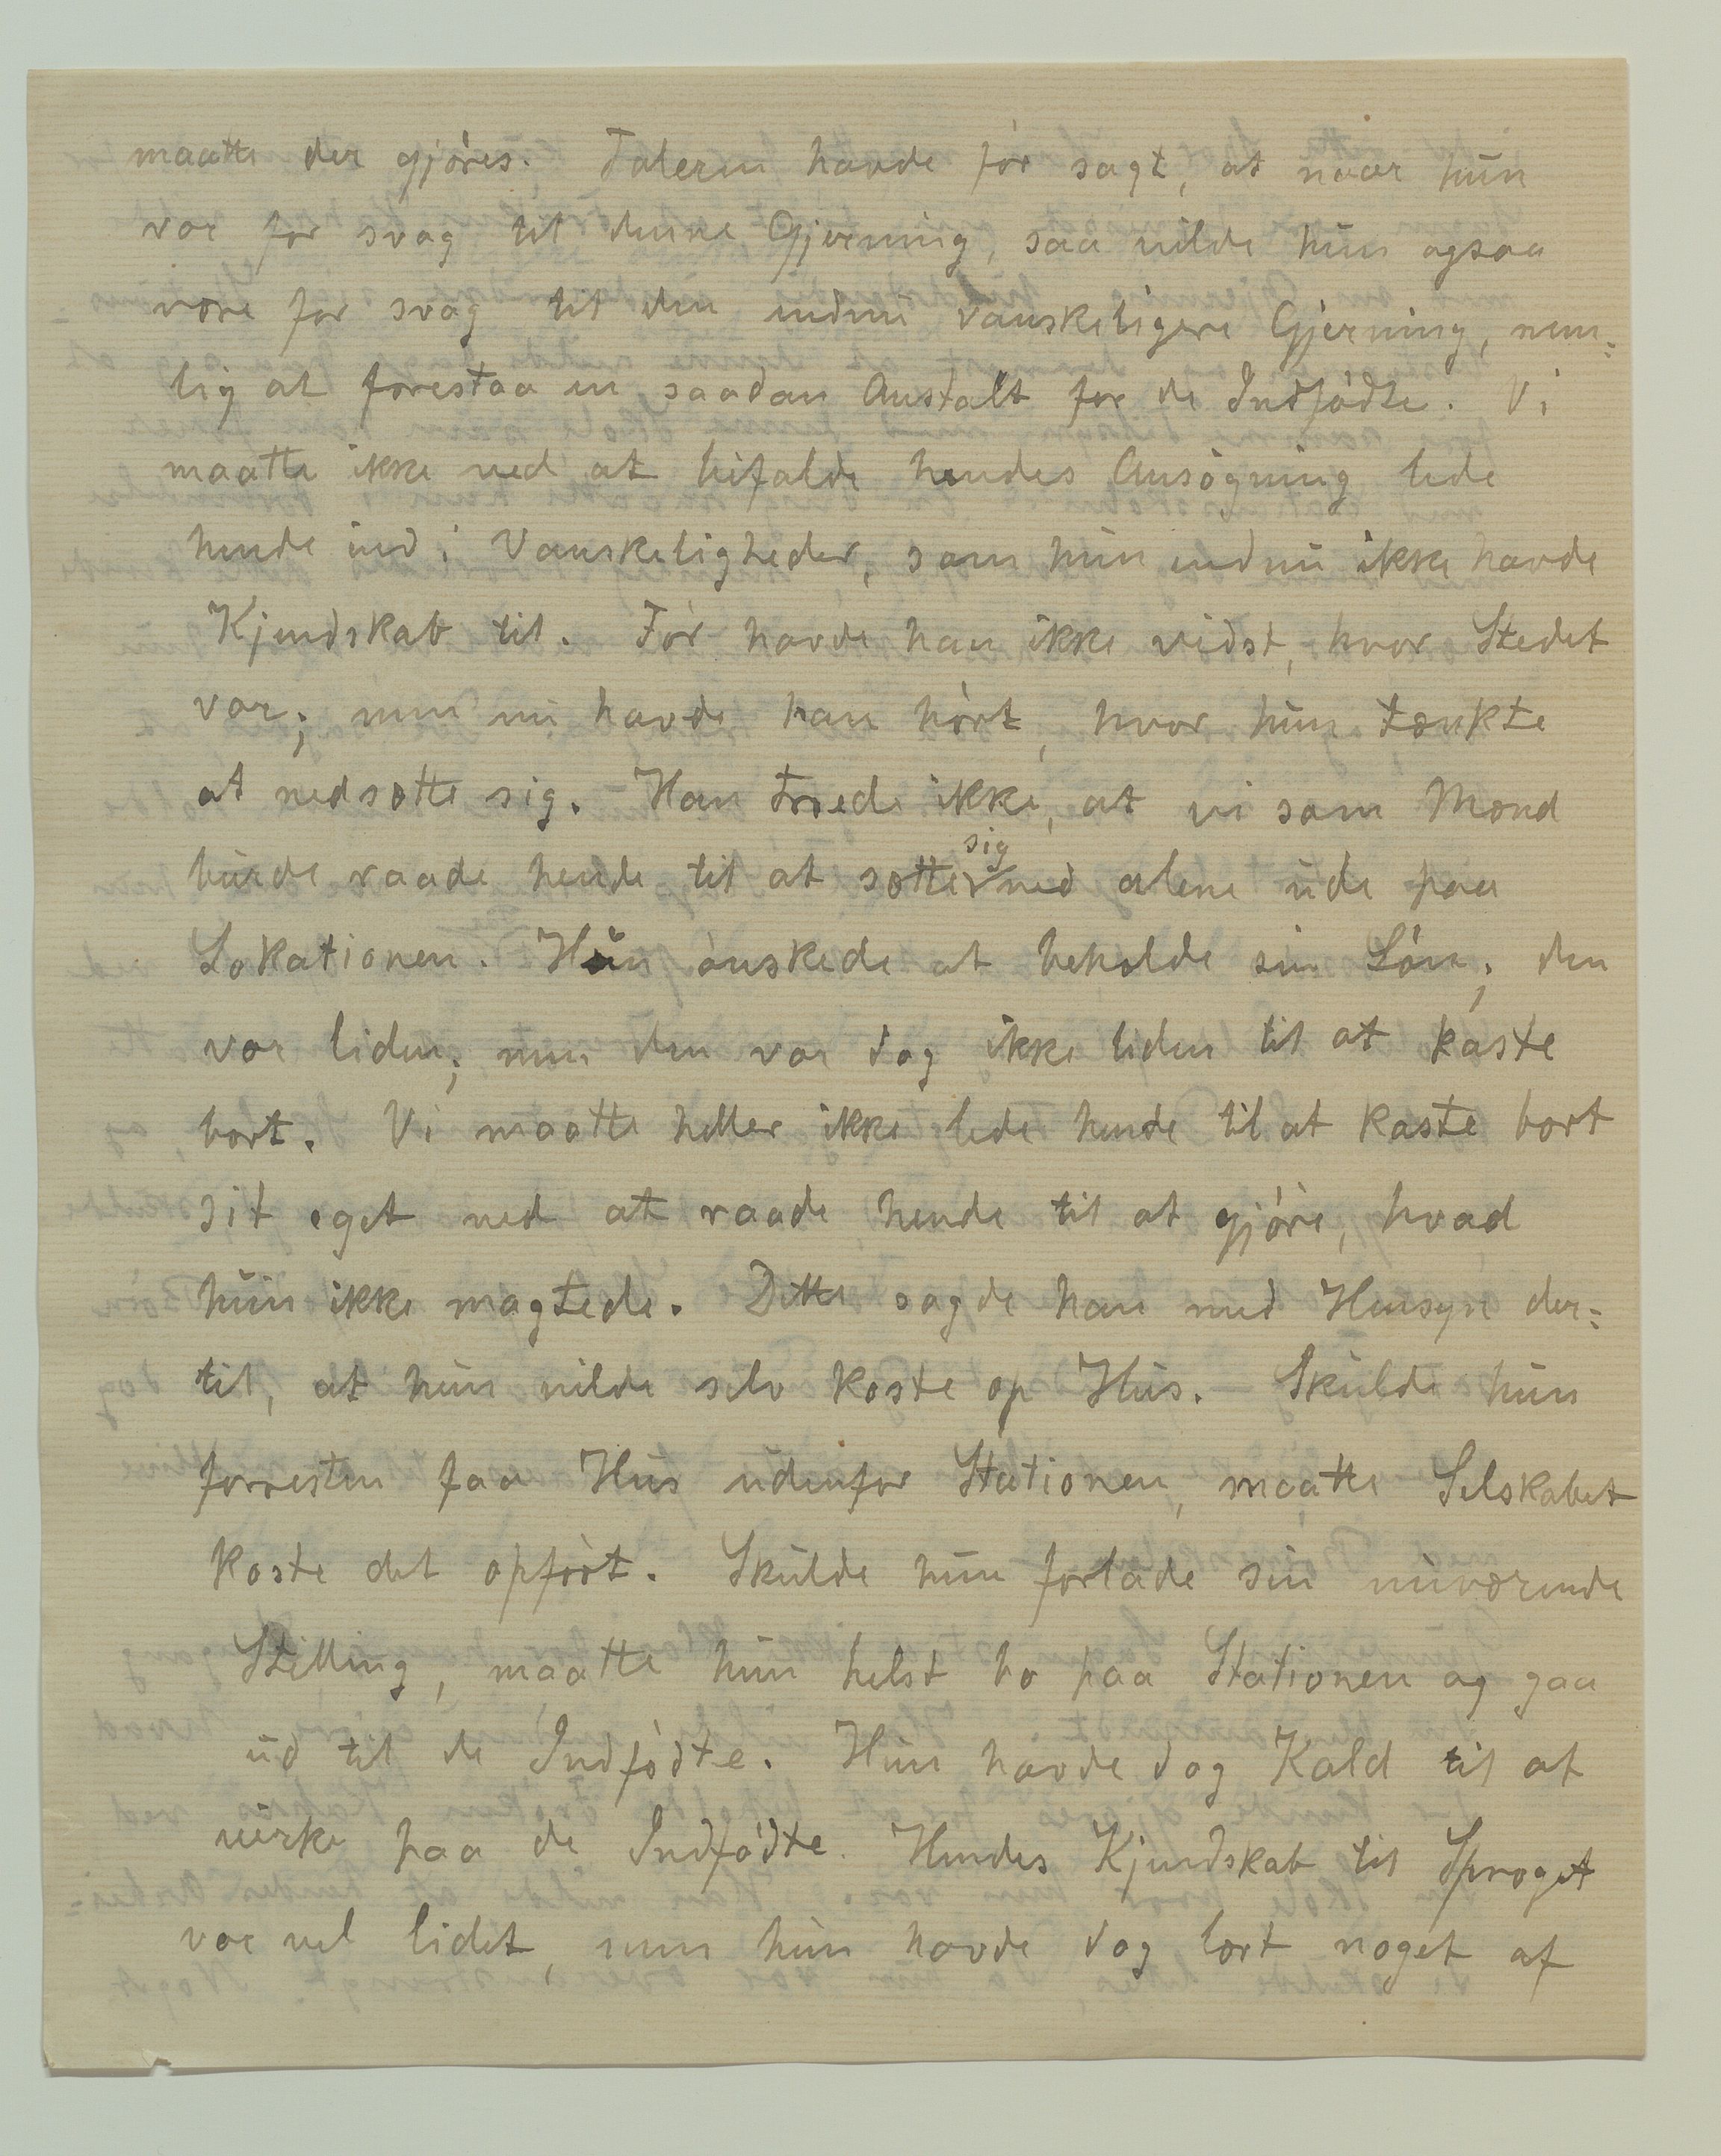 maatte der gjøres. Taleren havde før sagt, at naar hun
var for svag til denne Gjerning, saa vilde hun ogsaa
være for svag til den endnu vanskeligere Gjerning, nem-
lig at forestaa en saadan Anstalt for de Indfødte. Vi
maatte ikke ved at bifalde hendes Ansøgning lede
hende ind i Vanskeligheder, som hun endnu ikke havde
Kjendskab til. Før havde han ikke vidst, hvor Stedet
var; men nu havde han hørt, hvor hun tænkte
at nedsætte sig. Han troede ikke, at vi som Mænd
burde raade hende til at sætte sig ned alene ude paa
Lokationen. Hun ønskede at beholde sin Løn; den
var liden; men den var dog ikke liden til at kaste
bort. Vi maatte heller ikke lede hende til at kaste bort
sit eget ved at raade hende til at gjøre, hvad
hun ikke magtede. Dette sagde han med Hensyn der-
til, at hun vilde selv koste op Hus. Skulde hun
forresten faa Hus udenfor Stationen, maatte Selskabet
koste det opført. Skulde hun forlade sin nuværende
Stilling, maatte hun helst bo paa Stationen og gaa
ud til de Indfødte. Hun havde dog Kald til at
virke paa de Indfødte. Hendes Kjendskab til Sproget
var vel lidet, men hun havde dog lært noget af